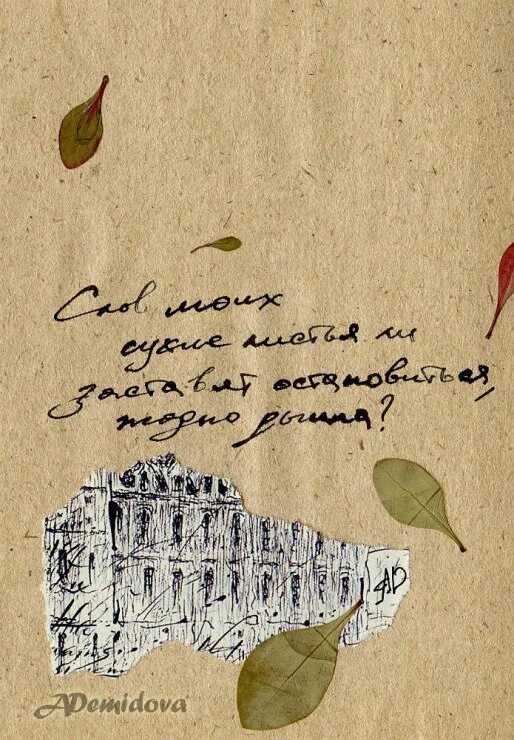 Слов моих
сухие листья ли
заставят остановиться,
жадно дыша?
AD
ADemidova